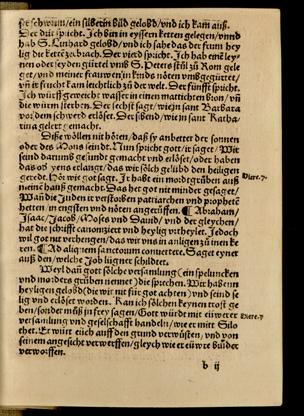 ser schwum/ein silberin bild gelobd/vnd ich kam auß.
Der drit spricht. Ich bin in eyssern ketten gelegen/vnnd
hab S. Linhard gelobd/vnd ich sahe das der frum hey
lig die keten zerbrach. Der vierd spricht. Ich hab eine ley-
nen oder seyden gürtel vmb S. Peters stul zu Rom gele
get/vnd meiner frauwen in kinds nöten vmbgegürtet/
vn ir frucht kam leichtlich zu der welt. Der fünfft spricht.
Ich würff geweicht wasser in einen brunen/vn
die würm sterben. Der sechst sagt/wie in sant Barbara
vor dem schwerd erlöset. Der sibend/wie in sant Katha-
rina gelert gemacht.
Diße wöllen nit hören/daß sy anbetter der sonnen
oder des Mons seind. Nun spricht gott/ir saget/Wir
seind darumb gesund gemacht vnd erlöset/oder haben
das oder yens erlangt/das wir solch gelübd den heiligen
geredt. Hör wie got sagt. Ir habt ein mordtgrüben auß
meine hauß gemacht. Das het got nit minder gesaget/
Wan die Juden ir verstorben patriarchen vnd prophete
hetten in engsten vnd nöten angerüffen. ¶ Abraham/
Isaac/Jacob/Moses vnd Dauid/vnd der gleychen/
hat die schrifft canoniziert vnd heylig verheylet. Jedoch
wil got nit verhengen/das wir vns in anligen zu inen ke
ren. ¶ Ad aliquem sanctorum conuertere. Saget eyner
auß den/welche Job lügner schildtet.
Weyl dan gott solche versamlung (ein speluncken
vnd mordes grüben nennet) die sprechen. Wir haben
heyligen gelobd (die wir nit für göt achten) vnd seind se
lig vnd erlöset worden. Kan ich solchen keynen trost ge
ben/sonder müß in frey sagen/Gott würd mit eüwerer
versamlung vnd geselschafft handeln/wie er mitt Silo
thet. Er würt eüch auff den grund verwüsten/vnd von
seinem angesicht verwerffen/gleych wie er eüwere brüder
verworffen.
b ij
Diere. 7.
Diere. 7.